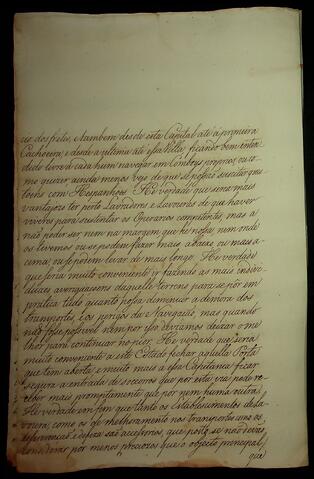 ues dos fretes, e tambem desde esta Capital até á primeira
Cachoeira, e desde a ultima até essa Villa, ficando bem enten
dido livre a cada hum navegar em Comboys proprios, ou co
mo quizer, ainda menos vejo de que se possão suscitar ques
toens com Hespanhoes. He verdade que seria mais
vantajozo ter perto Lavradores e Lavouras de que haver
viveres para sustentar os Operarios competentes, mas a
não poder ser, nem na margem que he nossa, nem onde
os tivemos ou se podem fazer mais abaixo ou mais a
cima, supponde levar de mais longe. He verdade
que seria muito conveniente ir fazendo as mais indivi
duaes averiguaçoens daquelle terreno para se pôr em
pratica tudo quanto possa deminuir a demora dos
transportes, e os perigos da Navegação, mas quando
não fosse possivel nem por isso deviamos deixar o me
lhor para continuar no pior. He verdade que seria
muito conveniente a este Estado fechar aquella Porta
que tem aberta, e muito mais a essa Capitania ficar
segura a entrada de socorros que por esta via pode re
ceber mais promptamente que por nem huma outra.
He verdade em fim que tanto os Establecimentos de la
voura, como os de melhoramento nos transportes, uns os
de segurança e defeza são accessorios, que posto se não devão
considerar por menos preciozos que o objecto principal,
que